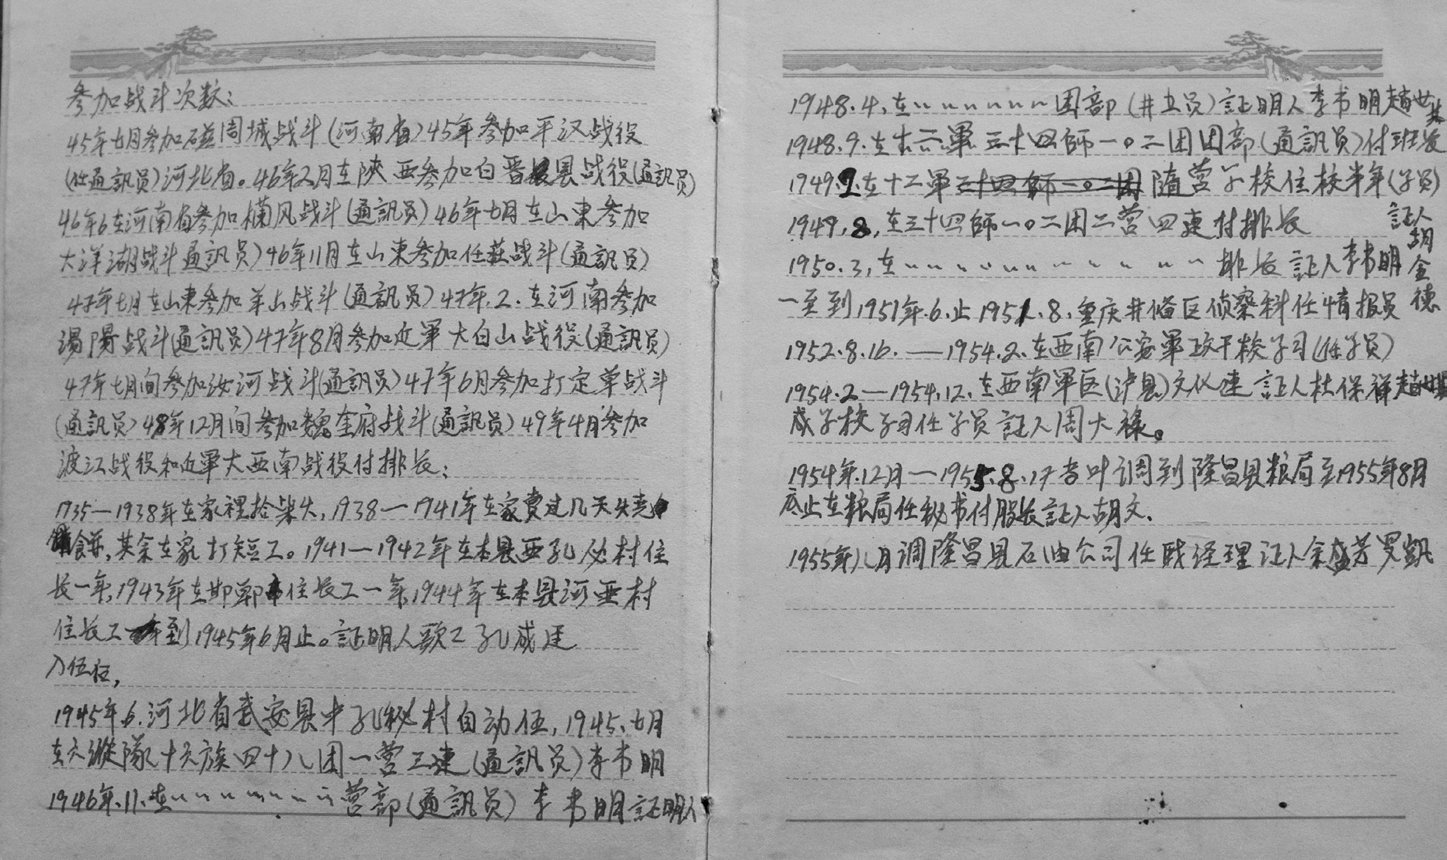 参加战斗次数：
45年七月参加磁周城战斗(河南省)45年参加平汉战役
(任通訊员)河北省。46年2月在陕西参加白晋县战役(通訊员)
46年6在河南省参加 风战斗(通訊员)46年七月在山東参加
大洋湖战斗通訊员)46年11月在山東参加任庄战斗(通訊员)
47年七月在山東参加羊山战斗(通訊员)47年.2.在河南参加
湯陽战斗(通訊员)47年8月参加近軍大白山战役(通訊员)
47年七月间参加汝河战斗(通訊员)47年6月参加打定单战斗
(通訊员)48年12月间参加魏 府战斗(通訊员)49年4月参加
渡江战役和近軍大西南战役付排长：
1935—1938年在家裡拾柴火,1938—1941年在家賣过几天
食,其余在家打短工。1941—1942年在本县西孔必村住
长一年,1943年在邯鄲市住长工一年,1944年在本县河西村
住长工一年到1945年6月止。証明人 孔成廷
入伍后,
1945年.6.河北省武安县中孔秘村自动伍,1945.七月
在六縱隊十六族四十八团一营三連(通訊员)李书明
1946年.11.在〃〃〃〃〃〃〃营部(通訊员)李书明証明人
1948.4.在〃〃〃〃〃〃〃团部(井卫员)証明人李书明趙世
1948.9.在十六軍三十四師一〇二团团部(通訊员)付班长
1949.2.在十二軍三十四師一〇二团隨营学校住校半年(学员)
1949.8,在三十四師一〇二团二营四連付排长 証人胡金德
1950.3,在〃〃〃〃〃〃〃〃〃〃排长証人李书明
一至到1951年.6.止1951.8.重庆井俻区侦察科任情报员
1952.8.16.——1954.2.在西南公安軍政干校学习(任学员)
1954.2—1954.12.在西南軍区(泸县)文化速証人杜保祥趙世
成学校学习任学员証人周大禄。
1954年.12月—1955.8.17 叶调到隆昌县粮局至1955年8月
底止在粮局任秘书付股长証人胡文.
1955年八月调隆昌县石油公司任 经理证人余盛芳罗凯